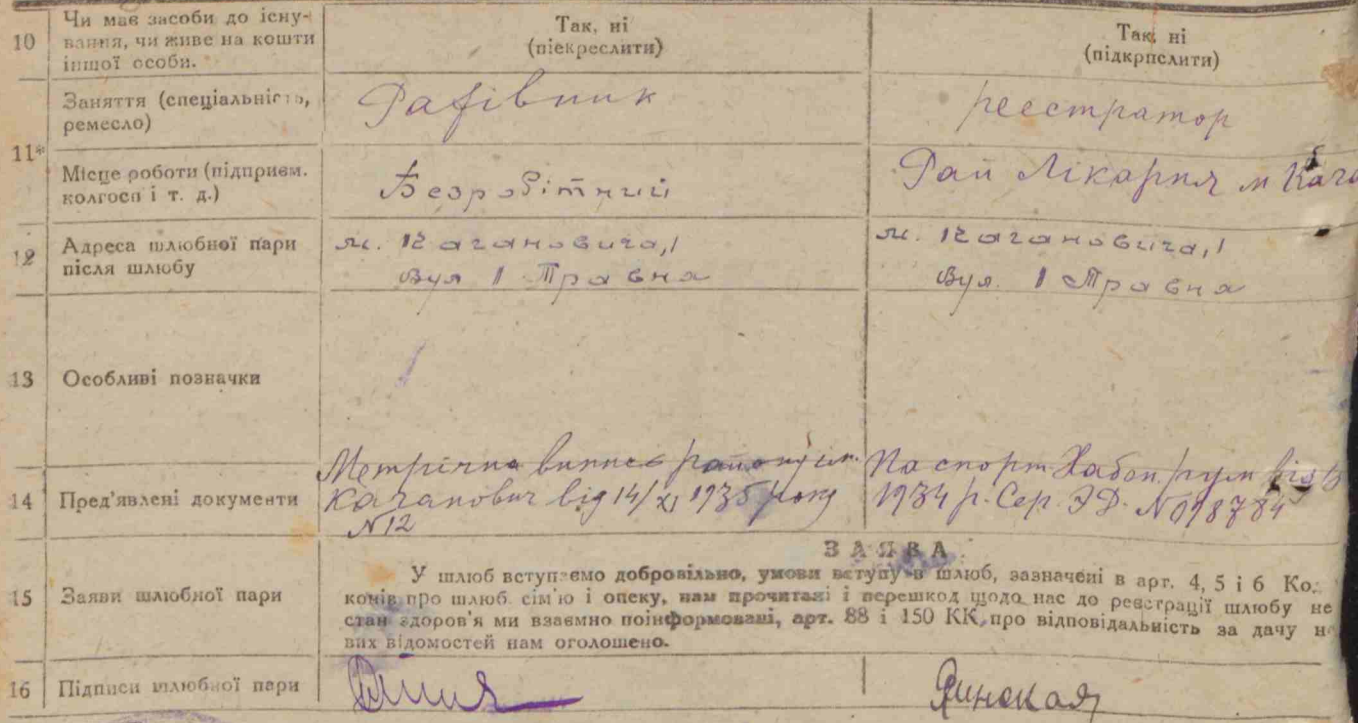 10 Чи має засоби до існу-
вання, чи живе на кошти
іншої особи.
Так, ні
(піекреслити)
Так, ні
(підкрпслити)
11*
Заняття (спеціальність,
ремесло)
реестратор
Місце роботи (підприєм.
колгосп і т. д.)
Безробітний
Рай Лікарня м Кага
12 Адреса шлюбної пари
після шлюбу
м. Кагановича, 1
вул 1 Травня
м. Кагановича, 1
вул. 1 Травня
13 Особливі позначки
14 Пред'явлені документи
Метрічна випись
Каганович від 14/XI 1935 року
N 12
Паспорт Хабон.
1934 р. Сер. ЭД. N 098784
ЗАЯВА
15 Заяви шлюбної пари
У шлюб вступаємо добровільно, умови вступу в шлюб, зазначені в арт. 4, 5 і 6 Ко.
конів про шлюб сім'ю і опеку, нам прочитані і перешкод щодо нас до реєстрації шлюбу не
стан здоров'я ми взаємно поінформовані, арт. 88 і 150 КК, про відповідальність за дачу н
вих відомостей нам оголошено.
16 Підписи шлюбної пари